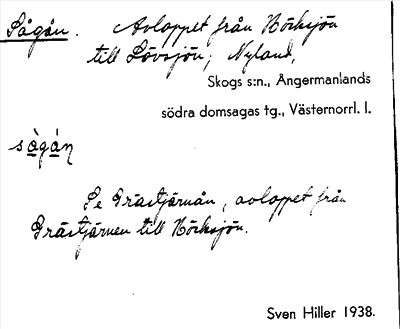 Sågån. Avloppet från Hörksjön
till Lövsjön, Nyland,
Skogs s:n., Ångermanlands
södra domsagas tg., Västernorrl. l.
sògán
Se Grästjärnån, avloppet från
Grästjärnen till Hörksjön.
Sven Hiller 1938.